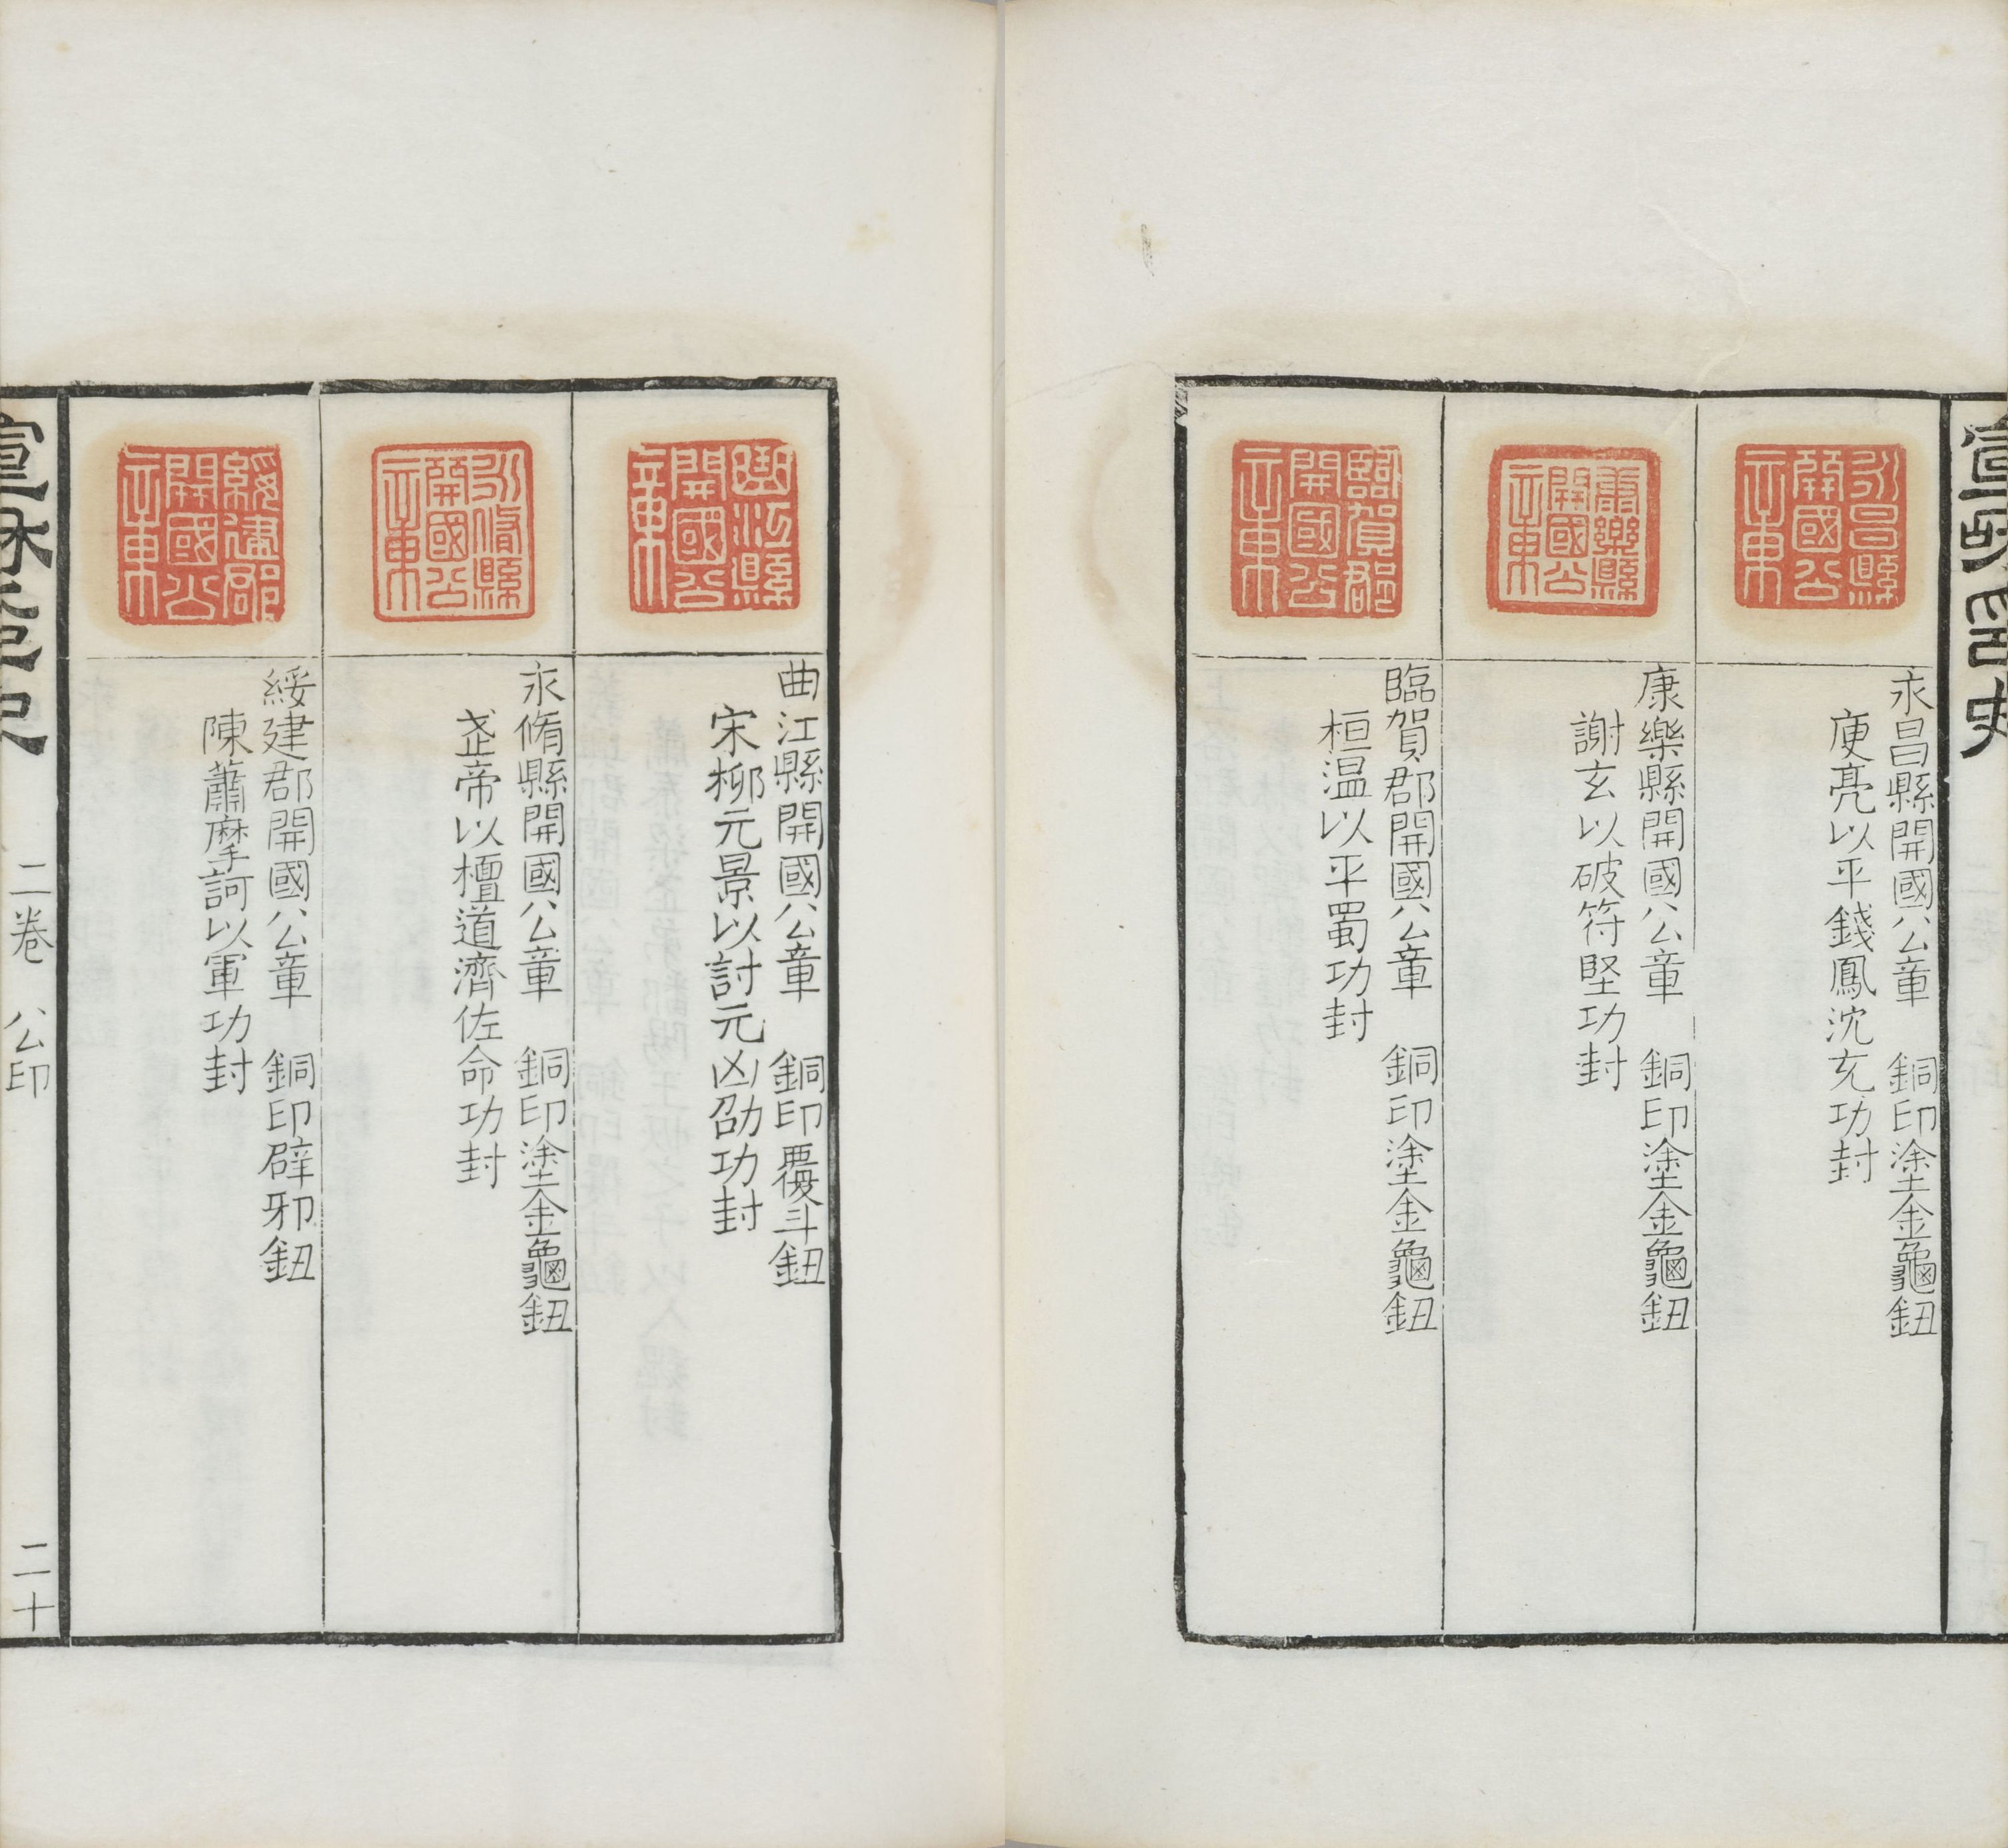 宣和印史
永昌縣
開國公
章
永昌縣開國公章　銅印塗金龜鈕
庾亮以平錢鳳沈充功封
康樂縣
開國公
章
康樂縣開國公章　銅印塗金龜鈕
謝玄以破符堅功封
臨賀郡
開國公
章
臨賀郡開國公章　銅印塗金龜鈕
桓温以平蜀功封
曲江縣
開國公
章
曲江縣開國公章　銅印覆斗鈕
宋柳元景以討元凶劭功封
永脩縣
開國公
章
永脩縣開國公章　銅印塗金龜鈕
武帝以檀道濟佐命功封
綏建郡
開國公
章
綏建郡開國公章　銅印辟邪鈕
陳蕭摩訶以軍功封
宣和印史
二卷　公印
二十